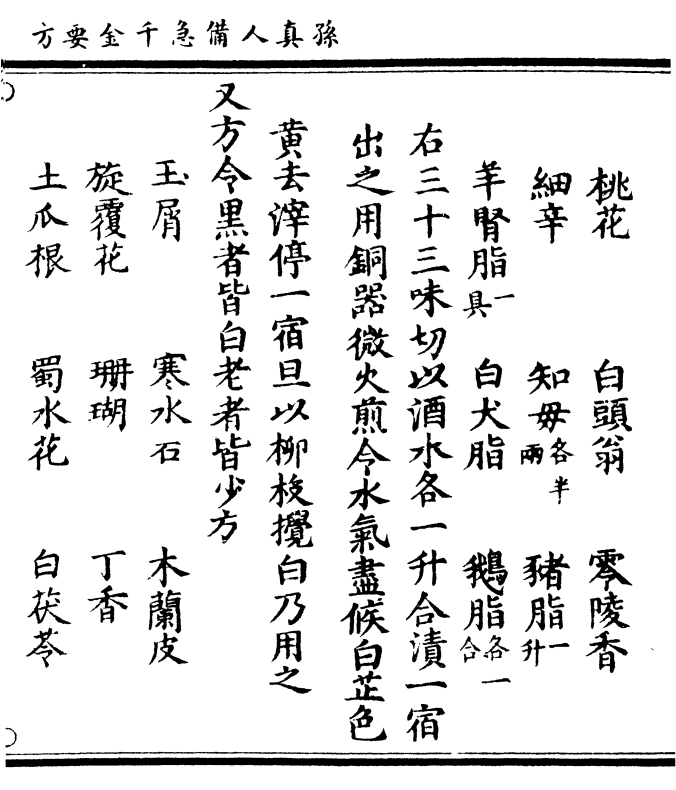 孫真人備急千金要方
桃花 白頭翁 零陵香
細辛 知母各半兩 豬脂一升
羊腎脂一具 白犬脂 鵝脂各一合
右三十三味切以酒水各一升合漬一宿
出之用銅器微火煎令水氣盡候白芷色
黄去滓停一宿旦以柳枝攪白乃用之
又方令黑者皆白老者皆少方
玉屑 寒水石 木蘭皮
旋覆花 珊瑚 丁香
土瓜根 蜀水花 白茯苓